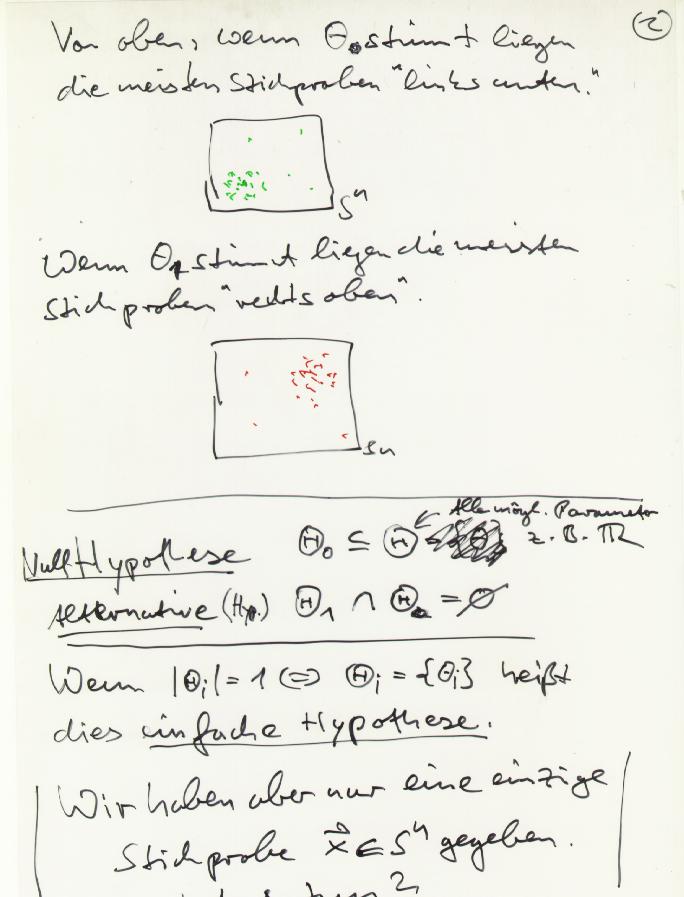 ②
Von oben, wenn Θ₀ stimmt liegen
die meisten Stichproben "links unten."
Sⁿ
Wenn Θ₁ stimmt liegen die meisten
Stichproben "rechts oben".
Sn
Alle mögl. Parameter
NullHypothese Θ₀ ⊆ Θ z. B. ℝ
Alternative (Hyp.) Θ₁ ∩ Θ₀ = ∅
Wenn |Θᵢ| = 1 ⇔ Θᵢ = {θᵢ} heißt
dies einfache Hypothese.
Wir haben aber nur eine einzige
Stichprobe x⃗ ∈ Sⁿ gegeben.